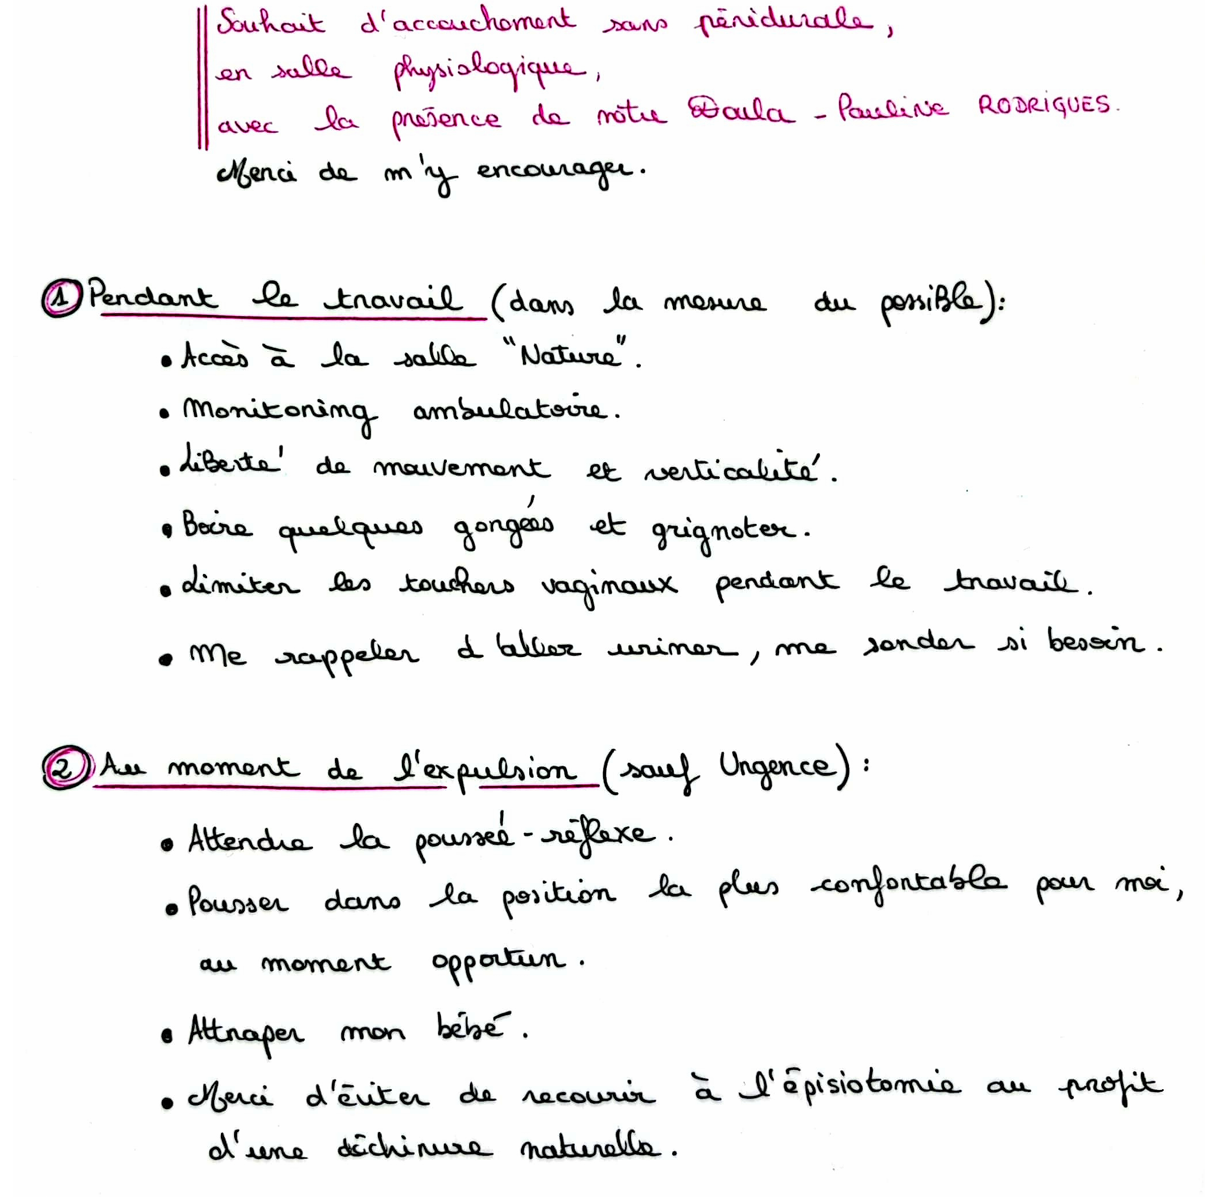 Souhait d'accouchement sans péridurale,
en salle physiologique,
avec la présence de nôtre Doula - Pauline RODRIGUES.
Merci de m'y encourager.
1 Pendant le travail (dans la mesure du possible):
• Accès à la salle "Nature".
• Monitoring ambulatoire.
• Liberté de mouvement et verticalité.
• Boire quelques gorgées et grignoter.
• Limiter les touchers vaginaux pendant le travail.
• Me rappeler d'aller uriner, me sonder si besoin.
2 Au moment de l'expulsion (sauf Urgence) :
• Attendre la poussée-réflexe.
• Pousser dans la position la plus confortable pour moi,
au moment opportun.
• Attraper mon bébé.
• Merci d'éviter de recourir à l'épisiotomie au profit
d'une déchirure naturelle.